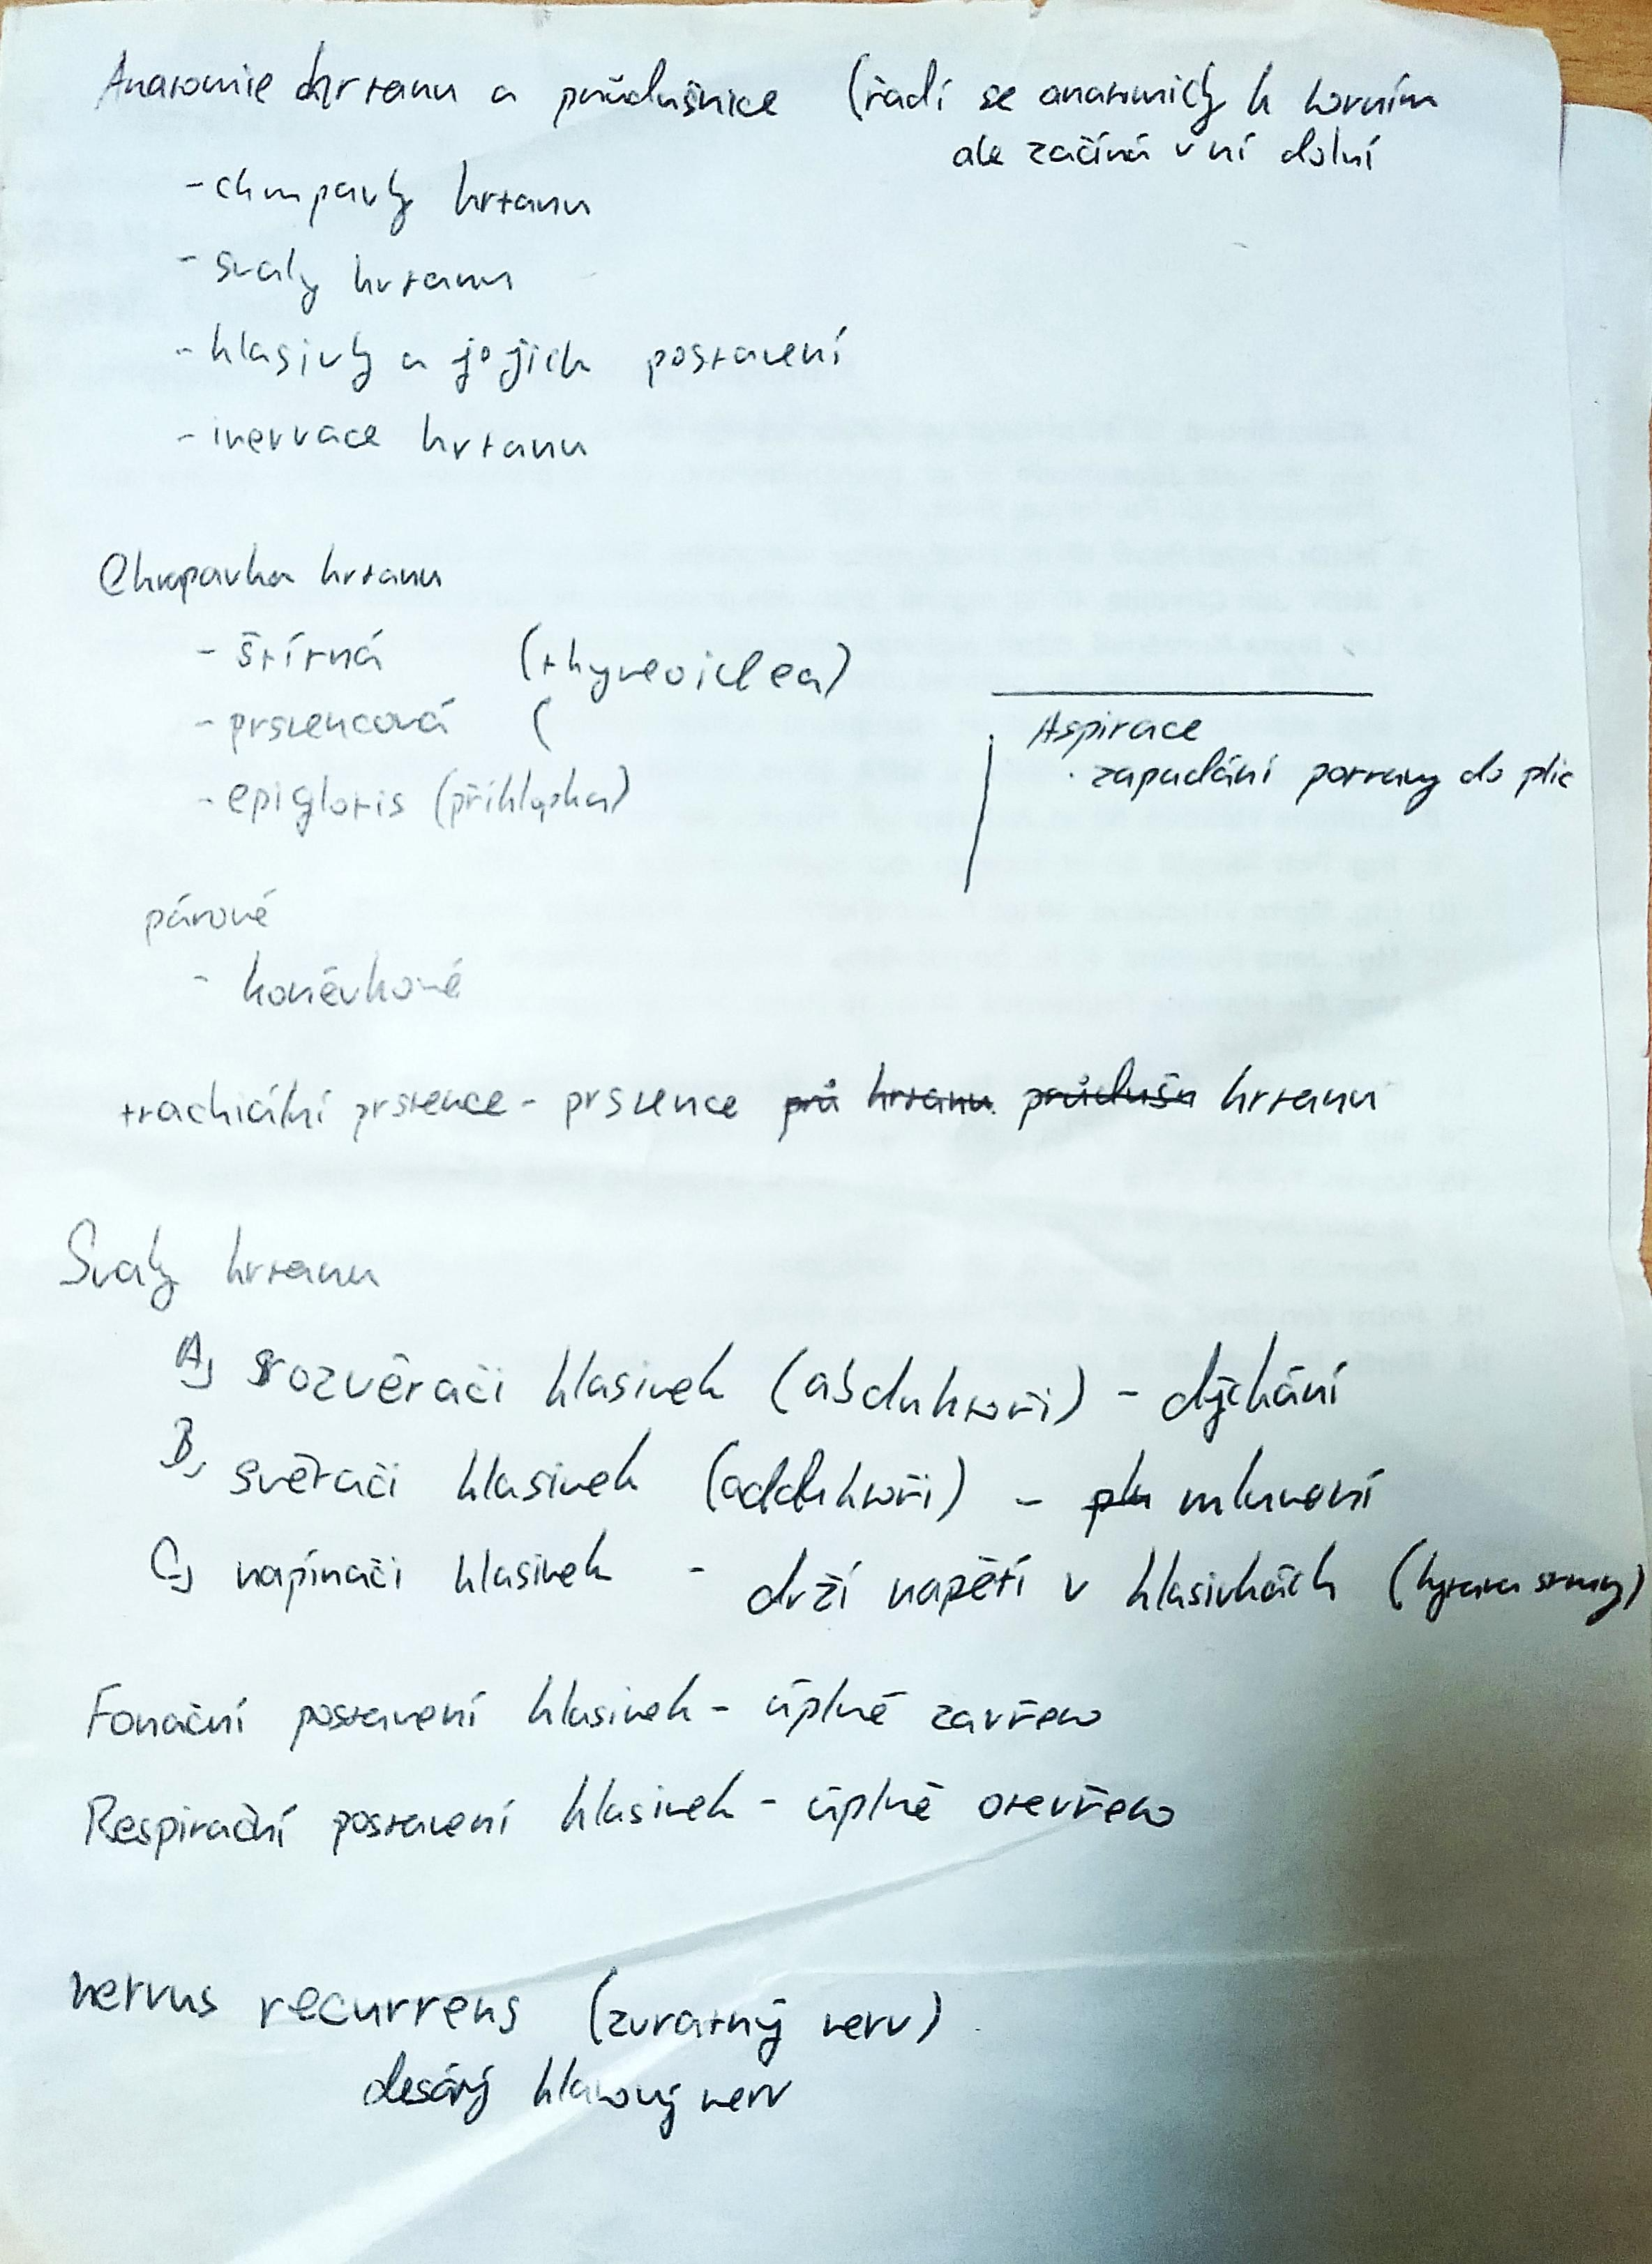 Anatomie hrtanu a průdušnice (řadí se anatomicky k horním
ale začíná v ní dolní
- chrupavky hrtanu
- svaly hrtanu
- hlasivky a jejich postavení
- inervace hrtanu
Chrupavka hrtanu
- štítná (thyreoidea)
- prstencová (
- epiglotis (příklopka)
Aspirace
· zapadání potravy do plic
párové
- konévkové
trachiální prstence - prstence prů hrtanu průdušn hrtanu
Svaly hrtanu
A) rozvěrači hlasivek (abduktoři) - dýchání
B) svěrači hlasivek (adduktoři) - mluvení
C) napínači hlasivek - drží napětí v hlasivkách (kytara struny)
Fonační postavení hlasivek - úplně zavřeno
Respirační postavení hlasivek - úplně otevřeno
nervus recurrens (zvratný nerv)
desátý hlavový nerv